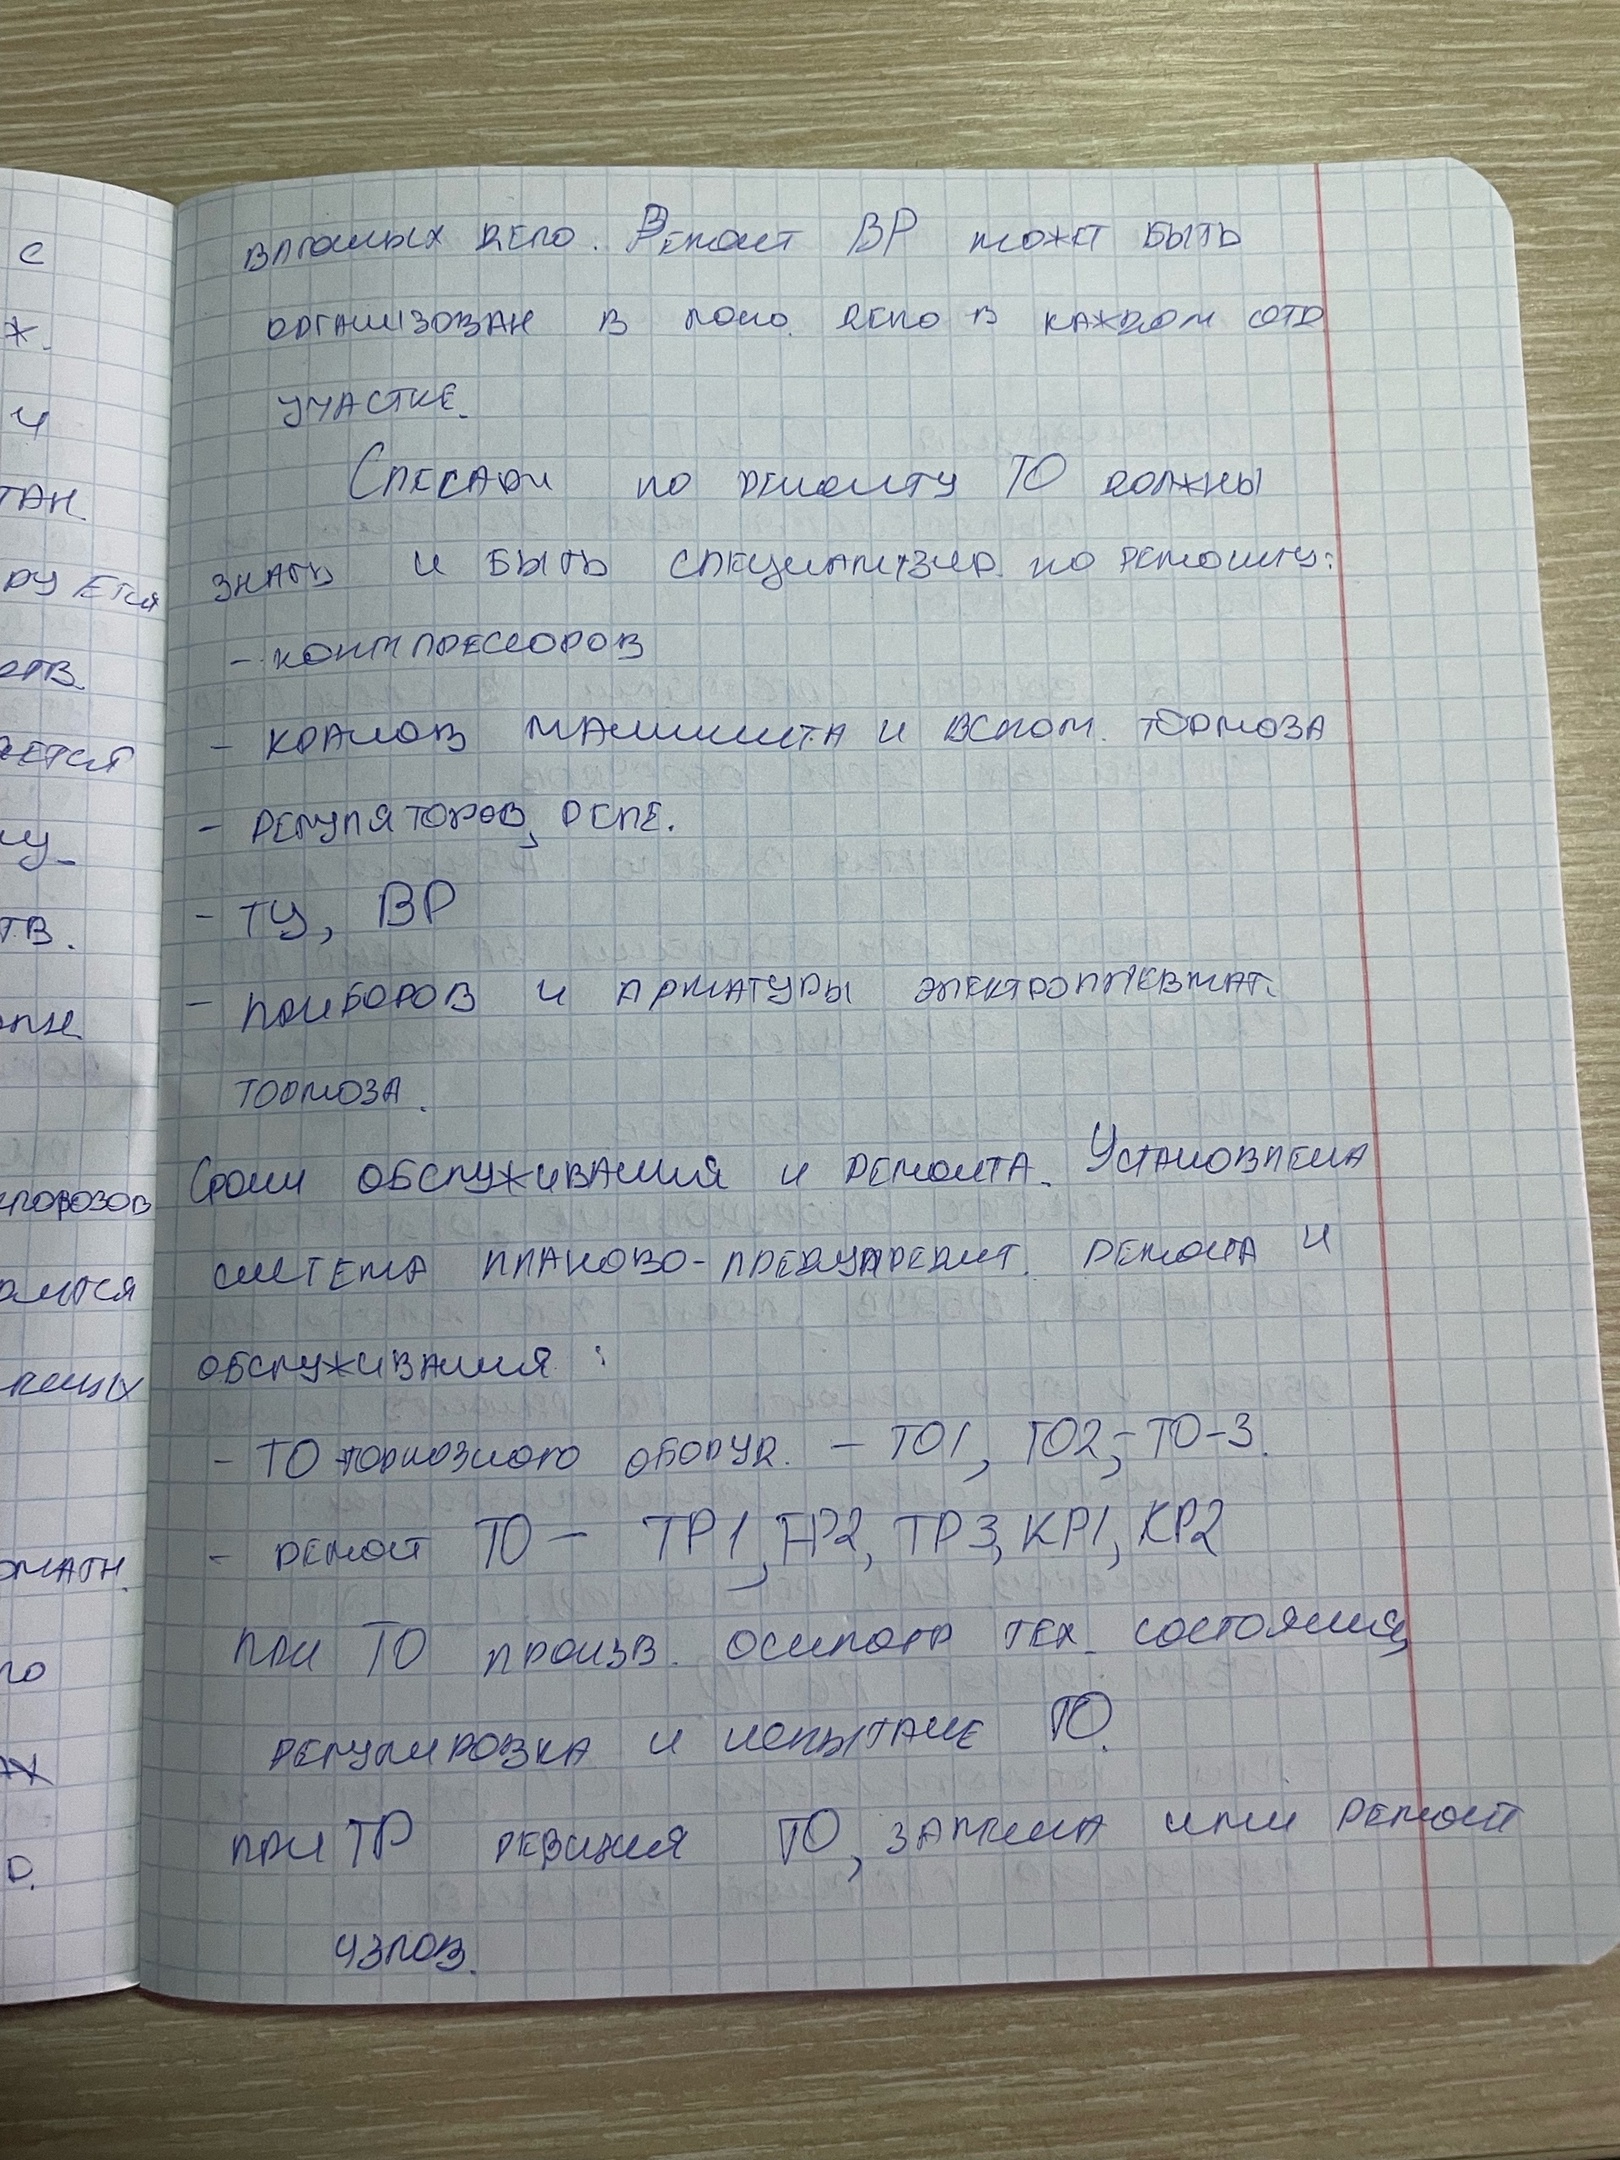 вагонных депо. Ремонт ВР может быть
организован в локо. депо в каждом отд
участке.
Слесари по ремонту ТО должны
знать и быть специализир. по ремонту:
- компрессоров
- кранов машиниста и вспом. тормоза
- регуляторов, реле.
- ТЦ, ВР
- приборов и арматуры электропневмат.
тормоза.
Сроки обслуживания и ремонта. Установлена
система планово-предупредит. ремонта и
обслуживания:
- ТО тормозного оборуд. - ТО1, ТО2, - ТО-3.
- ремонт ТО - ТР1, ТР2, ТР3, КР1, КР2
при ТО произв. осмотр тех. состояния,
регулировка и испытание ТО.
при ТР ревизия ТО, замена или ремонт
узлов.